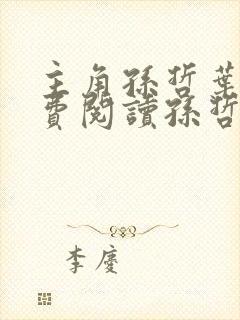 主角孫哲葉
費閱讀孫哲
李慶